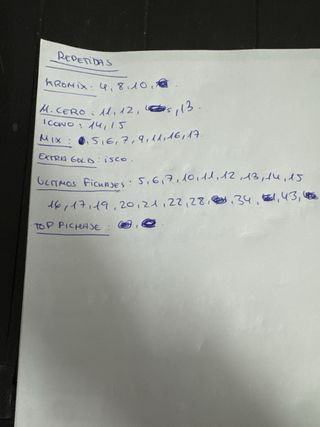 REPETIDAS
KROMIX: 4, 8, 10,
M. CERO: 11, 12, 13.
ICONO: 14, 15
MIX: 5, 6, 7, 9, 11, 16, 17
EXTRA GOLD: ISCO.
ULTIMOS FICHAJES: 5, 6, 7, 10, 11, 12, 13, 14, 15
16, 17, 19, 20, 21, 22, 28, 34, 43,
TOP FICHAJE: